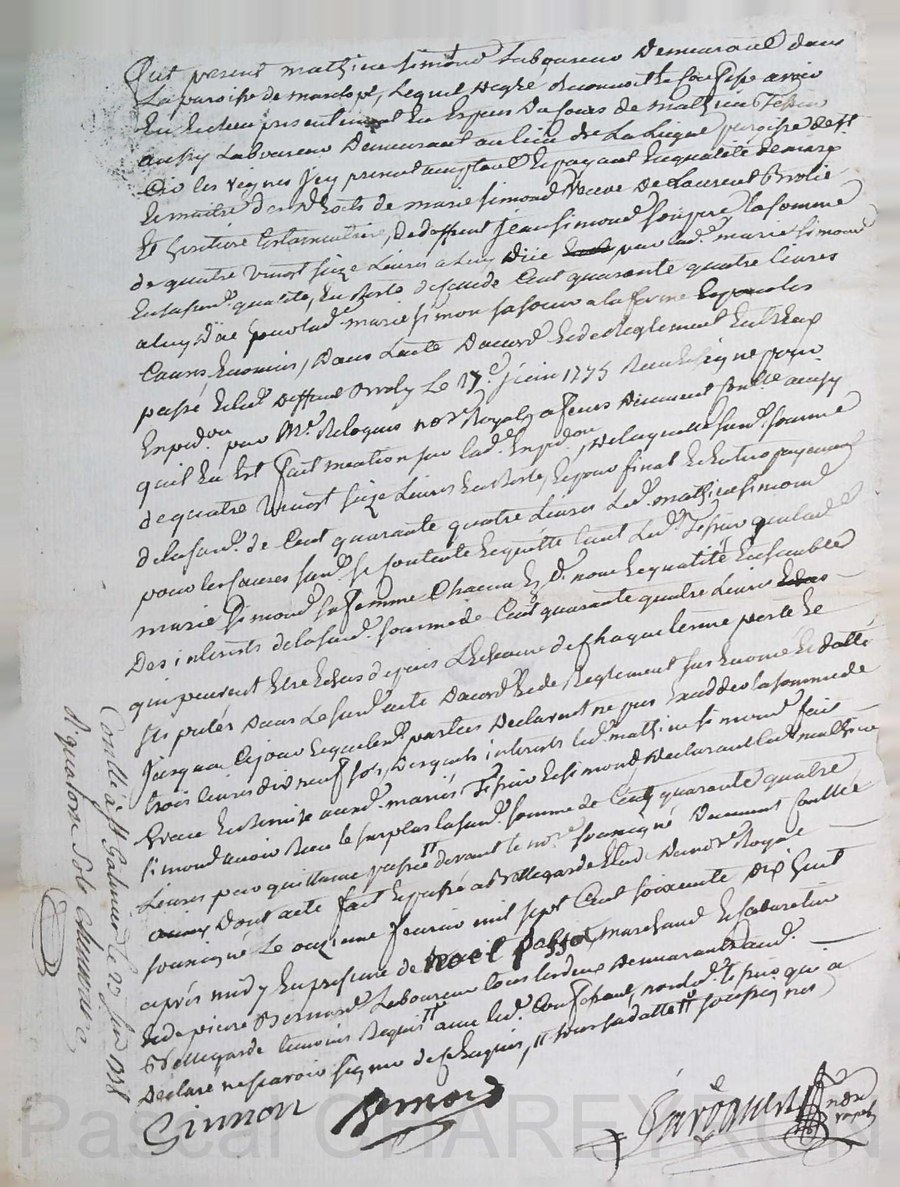 Fut présent mathieu simond Laboureur Demeurant dans
La paroisse de marclopt, Lequel degré reconnoit et confesse avoir
Eu Receu presentement En Espèces Du Cours de mathieu Tessier
aussy Laboureur Demeurant au lieu de La Ligue paroisse de st
les vignes Jcy present acceptant Et payant En qualité de mary
Et maitre des Droits de marie simond veuve De Laurent
Et heritiere testamentaire, De deffunt Jean simond son pere, la somme
De quatre vingt seize Livres a Luy Düe par lad. marie simond
En sa susd. qualité, En Reste de celle de Cent quarante quatre livres
a luy Düe par lad. marie simon sa soeur a la forme
Causes Enoncées, Dans L'acte D'acord Et de Reglement Entreux
passé Et led. deffunt Le 17e juin 1775 Receu Et signé pour
Expedon. par Me. nore. Royal a feurs Düement Conllé ainsy
quil En Est fait mention sur lad. Expedon, De laquelle susd. somme
de quatre vingt seize Livres En Reste, Et pour final Et Entier payement
De la susd. de Cent quarante quatre Livres Led. mathieu simond
pour les causes susd. se Contente Et quitte tant Led. Tessier que lad.
marie simond sa femme Chacun En d. nom Et qualité Ensemble
Des interests de la susd. somme de Cent quarante quatre Livres
qui peuvent Etre Echus depuis L'Echeance de Chaque terme porté Et
stipulés Dans Le susd. acte D'acord Et de Reglement sus Enoncé Et datté
Jusqua Ce jour Lesquels parties Declarent ne pas Exceder la somme de
trois livres dix neuf sols, Desquels interests led. mathieu simond fait
Grace Et Remise aux d. mariés Tessier Et simond, Declarant led. mathieu
simond avoir Receu le surplus la susd. somme de Cent quarante quatre
Livres par quittance passée devant le nore. soussigné Duement Conllée
Dont acte fait Et passé a Bellegarde Etude Du nore. Royal
soussigné Le onzieme fevrier mil sept Cent soixante Dix huit
après midy En presence de noël passot, marchand Et Cabaretier
Et de pierre Bernard Laboureur tous les deux Demeurants aud.
Bellegarde temoins Requis avec led. Tessier qui a
Declaré ne scavoir signer de ce Enquis, soussignés
Simon Bernard
nore
royal
Conllé a st Galmier Le 23 1778
R quatorze sols
Pascal CHAREYRON